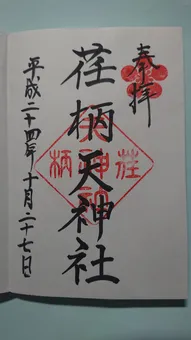 奉拝
荏柄天神社
平成二十四年十月二十七日
荏
柄